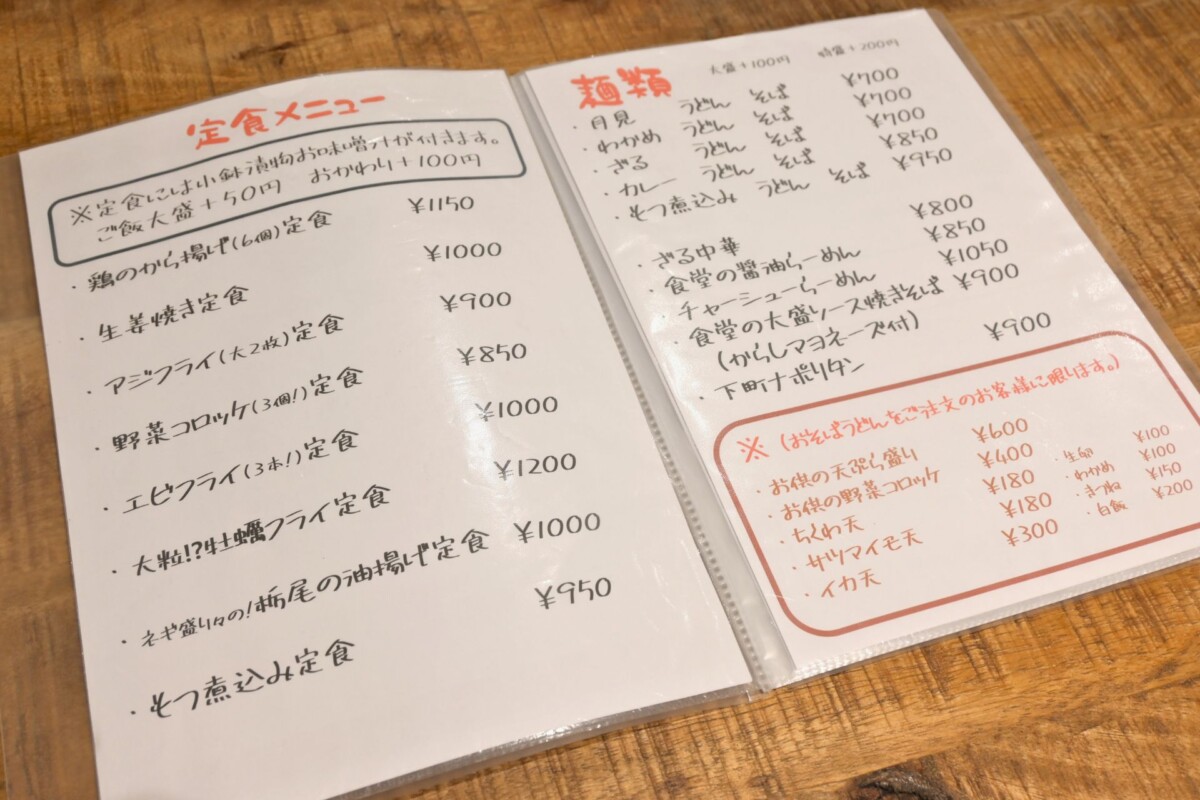 定食メニュー
※定食には小鉢漬物お味噌汁が付きます。
ご飯大盛+50円 おかわり+100円
・鶏のから揚げ(6個)定食 ¥1150
・生姜焼き定食 ¥1000
・アジフライ(大2枚)定食 ¥900
・野菜コロッケ(3個!)定食 ¥850
・エビフライ(3本!)定食 ¥1000
・大粒!?牡蠣フライ定食 ¥1200
・ネギ盛り々の!栃尾の油揚げ定食 ¥1000
・もつ煮込み定食 ¥950
麺類 大盛+100円 特盛+200円
・月見 うどん そば ¥700
・わかめ うどん そば ¥700
・ざる うどん そば ¥700
・カレー うどん そば ¥850
・もつ煮込み うどん そば ¥950
・ざる中華 ¥800
・食堂の醤油らーめん ¥850
・チャーシューらーめん ¥1050
・食堂の大盛ソース焼きそば ¥900
(からしマヨネーズ付)
・下町ナポリタン ¥900
※(おそばうどんをご注文のお客様に限ります。)
・お供の天ぷら盛り ¥600
・お供の野菜コロッケ ¥400
・ちくわ天 ¥180
・サツマイモ天 ¥180
・イカ天 ¥300
・生卵 ¥100
・わかめ ¥100
・きつね ¥150
・白飯 ¥200